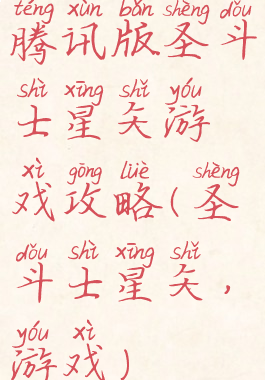 téng xùn bǎn shèng dǒu
腾讯版圣斗
shì xīng shǐ yóu
士星矢游
xì gōng lüè shèng
戏攻略(圣
dǒu shì xīng shǐ
斗士星矢,
yóu xì
游戏)